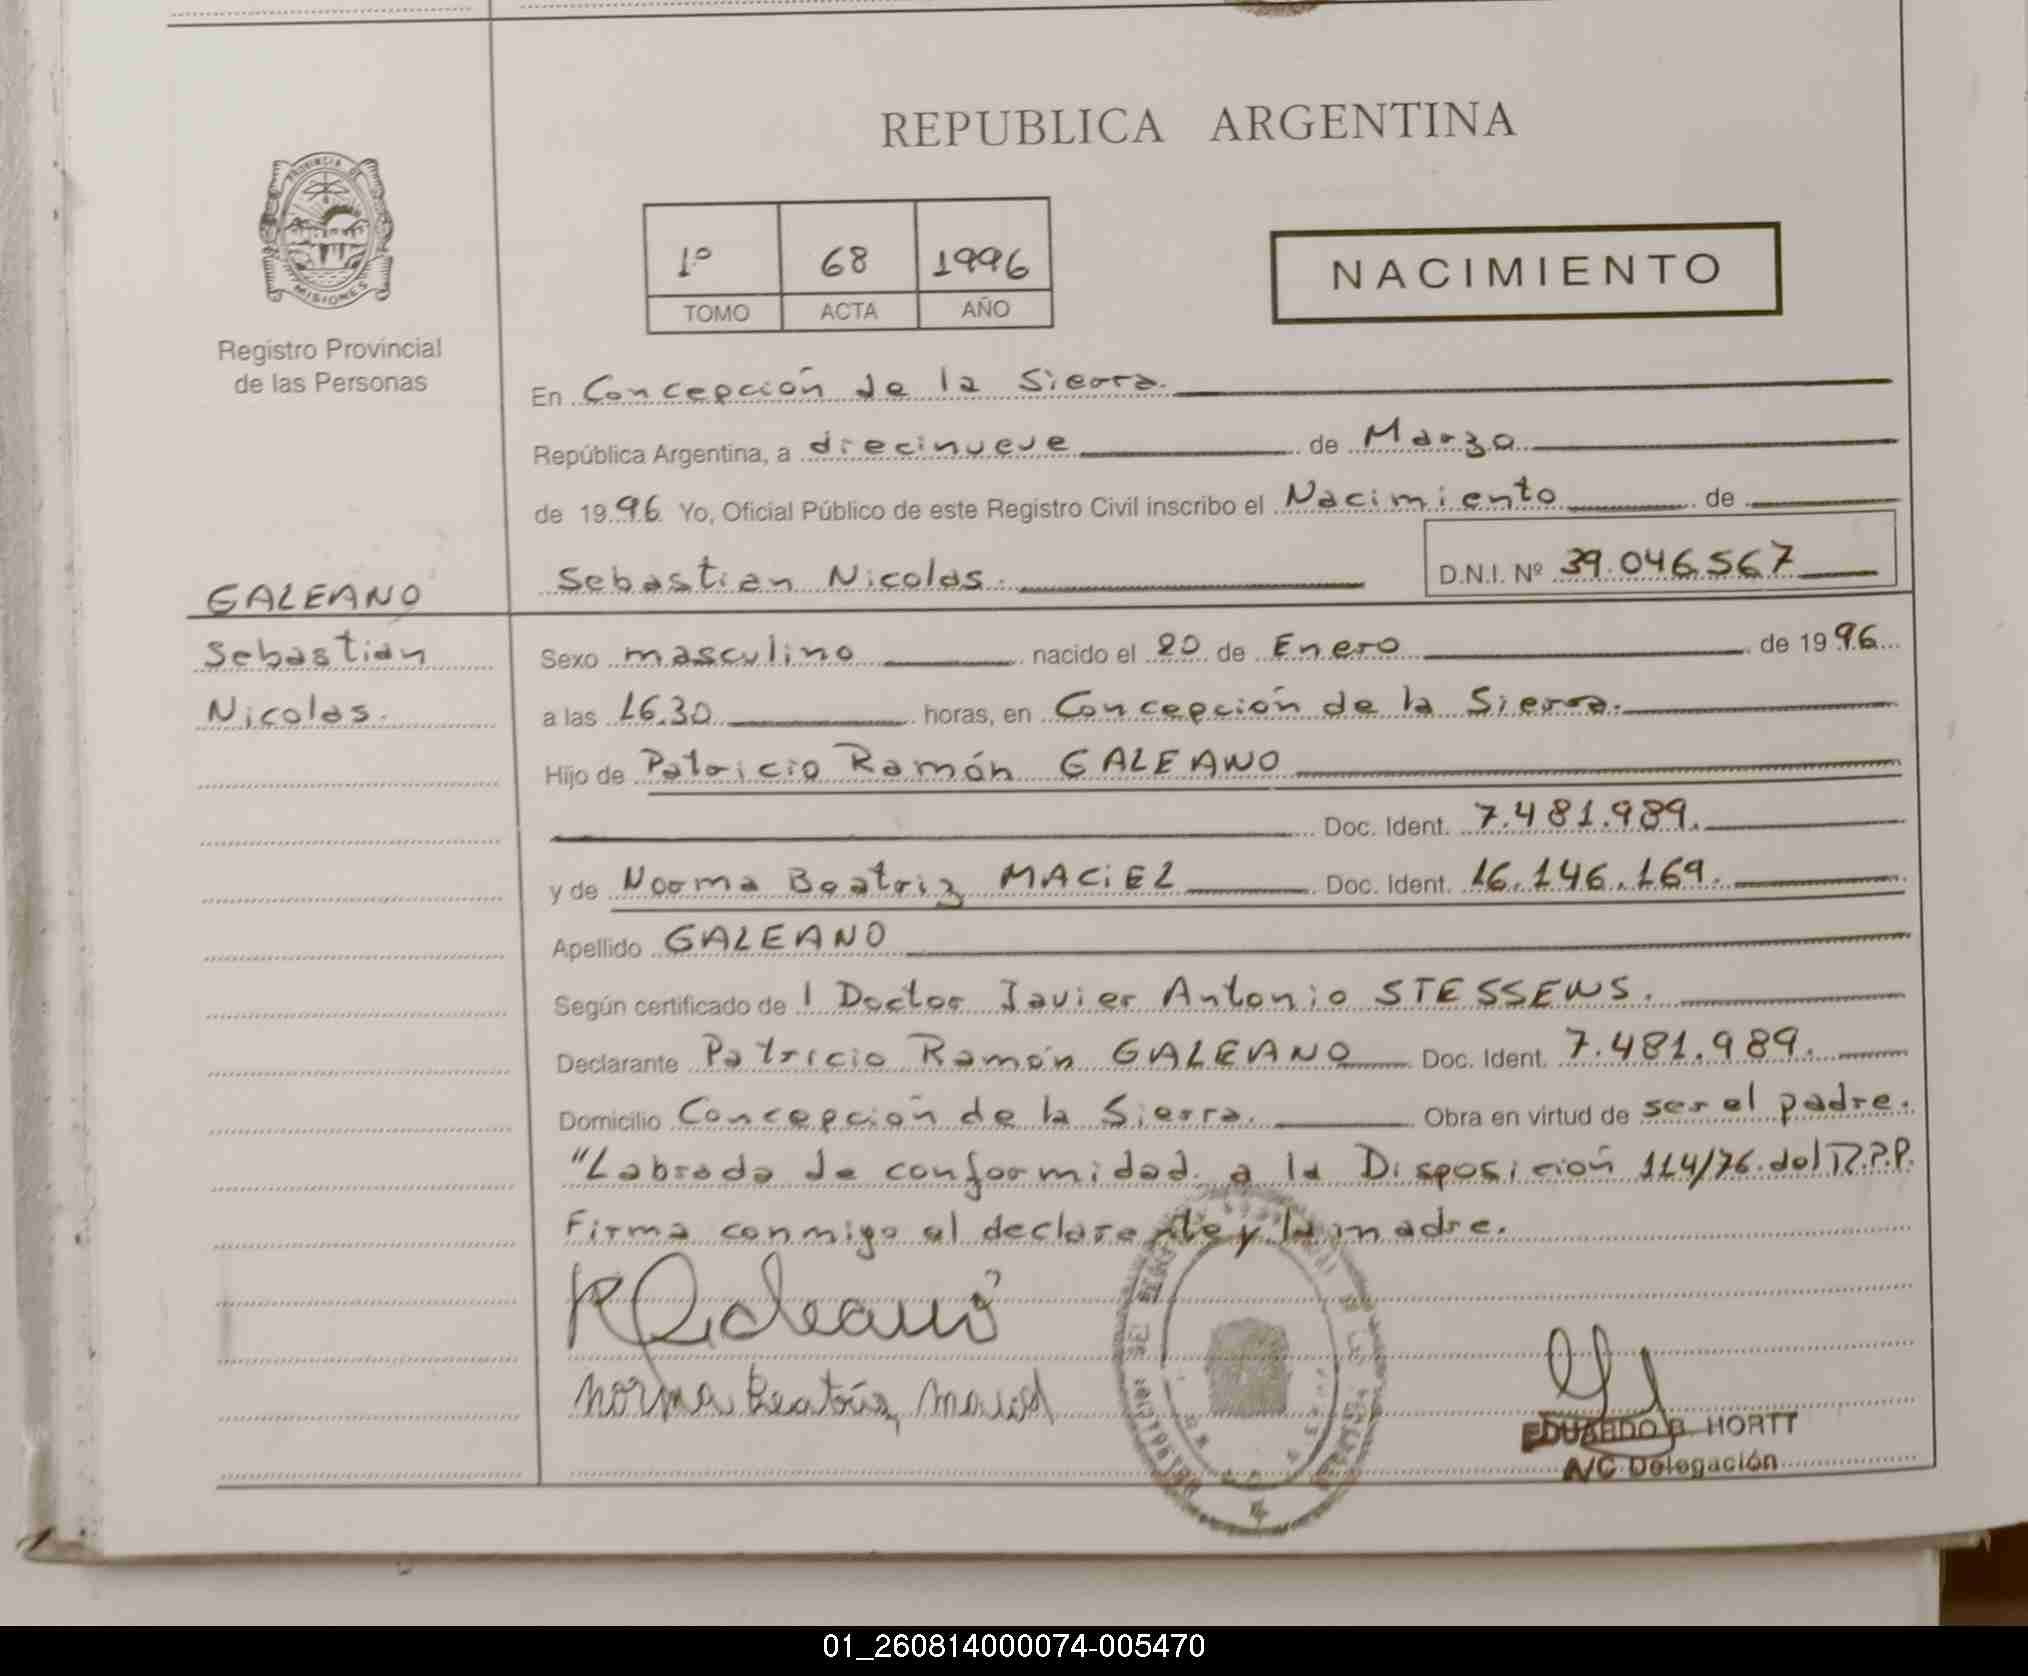 REPUBLICA ARGENTINA
PROVINCIA DE
MISIONES
Registro Provincial
de las Personas
1º 68 1996
TOMO ACTA AÑO
NACIMIENTO
En Concepción de la Sierra.
República Argentina, a diecinueve de Marzo
de 1996 Yo, Oficial Público de este Registro Civil inscribo el Nacimiento de
Sebastian Nicolas. D.N.I. Nº 39.046.567
GALEANO
Sebastian
Nicolas.
Sexo masculino nacido el 20 de Enero de 1996
a las 16.30 horas, en Concepción de la Sierra.
Hijo de Patricio Ramón GALEANO
Doc. Ident. 7.481.989.
y de Norma Beatriz MACIEL Doc. Ident. 16.146.169.
Apellido GALEANO
Según certificado de l Doctor Javier Antonio STESSENS.
Declarante Patricio Ramón GALEANO Doc. Ident. 7.481.989.
Domicilio Concepción de la Sierra. Obra en virtud de ser el padre.
"Labrada de conformidad a la Disposición 114/76 del R.P.P.
Firma conmigo el declarante y la madre.
Norma Beatriz Maciel
EDUARDO B. HORTT
A/C Delegación
01_260814000074-005470